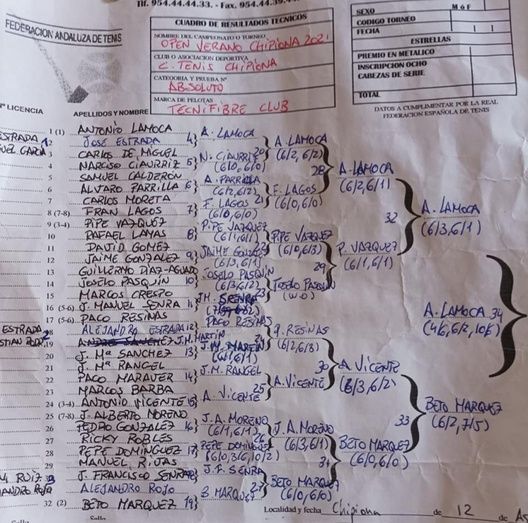 Tlf. 954.44.44.33. - Fax. 954.44.39.
FEDERACION ANDALUZA DE TENIS
CUADRO DE RESULTADOS TECNICOS
NOMBRE DEL CAMPEONATO O TORNEO
OPEN VERANO CHIPIONA 2021
CLUB O ASOCIACION DEPORTIVA
C. TENIS CHIPIONA
CATEGORIA Y PRUEBA Nº
ABSOLUTO
MARCA DE PELOTAS
TECNIFIBRE CLUB
SEXO M ó F
CODIGO TORNEO
FECHA
ESTRELLAS
PREMIO EN METALICO
INSCRIPCION OCHO
CABEZAS DE SERIE
TOTAL
DATOS A CUMPLIMENTAR POR LA REAL
FEDERACION ESPAÑOLA DE TENIS
Nº LICENCIA APELLIDOS Y NOMBRE
1 (1) ANTONIO LAMOCA
2 JOSE ESTRADA
3 CARLOS DE MIGUEL
4 NARCISO CIAURRIZ
5 SAMUEL CALDERÓN
6 ALVARO PARRILLA
7 CARLOS MORETA
8 (7-8) FRAN LAGOS
9 (3-4) PIPE VAZQUEZ
10 RAFAEL LAMAS
11 DAVID GOMEZ
12 JAIME GONZALEZ
13 GUILLERMO DIAZ-AGUADO
14 JOSELO PASQUIN
15 MARCOS CRESPO
16 (5-6) J. MANUEL SENRA
17 (5-6) PACO RESINAS
ALEJANDRO ESTRADA
19 J.H. MARTIN
20 J. Mª SANCHEZ
21 J. Mª RANGEL
22 PACO MARAVER
23 MARCOS BARBA
24 (3-4) ANTONIO VICENTE
25 (7-8) J. ALBERTO MORENO
26 PEDRO GONZALEZ
27 RICKY ROBLES
28 PEPE DOMINGUEZ
29 MANUEL RIJAS
30 J. FRANCISCO SENRA
ALEJANDRO ROJO
32 (2) BETO MARQUEZ
A. LAMOCA
N. CIAURRIZ
(6/0, 6/0)
A. PARRILLA
(6/2, 6/2)
F. LAGOS
(6/0, 6/0)
PIPE VAZQUEZ
(6/1, 6/1)
JAIME GONZALEZ
(6/3, 6/1)
JOSELO PASQUIN
(6/3, 6/2)
J.M. SENRA
PACO RESINAS
J.H. MARTIN
(6/1, 6/1)
J. M. RANGEL
A. VICENTE
J. A. MORENO
(6/1, 6/1)
PEPE DOMINGUEZ
(6/0, 3/6, 10/2)
J. F. SENRA
B. MARQUEZ
A. LAMOCA
(6/2, 6/2)
F. LAGOS
(6/0, 6/0)
PIPE VAZQUEZ
(6/0, 6/3)
JOSELO PASQUIN
(W.O)
P. RESINAS
(6/2, 6/3)
A. VICENTE
J. A. MORENO
(6/3, 6/1)
BETO MARQUEZ
(6/0, 6/0)
A. LAMOCA
(6/2, 6/1)
P. VAZQUEZ
(6/1, 6/1)
A. VICENTE
(6/3, 6/2)
BETO MARQUEZ
(6/0, 6/0)
A. LAMOCA
(6/3, 6/1)
BETO MARQUEZ
(6/2, 7/5)
A. LAMOCA 34
(4/6, 6/2, 10/6)
Localidad y fecha Chipiona de 12 de